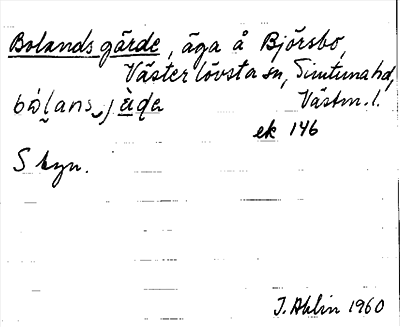 Bolandsgärde, äga å Björsbo,
Västerlövsta sn, Simtuna hd,
Västm. l.
ek 146
S hyn.
J. Ahlin 1960